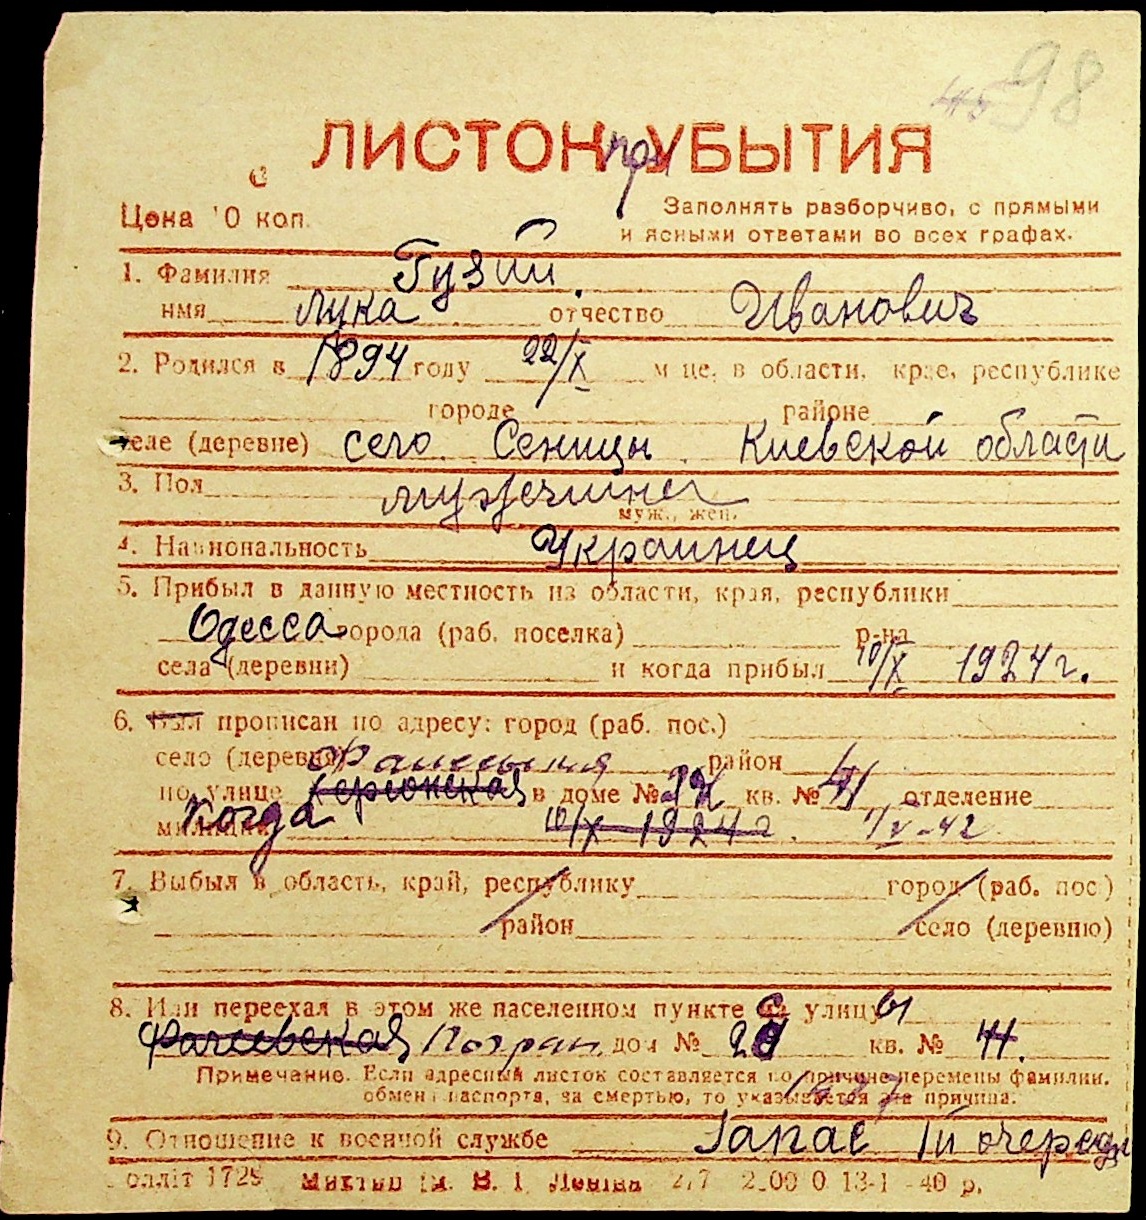 45 98
ЛИСТОК при УБЫТИЯ
Цена 10 коп. Заполнять разборчиво, с прямыми
и ясными ответами во всех графах.
1. Фамилия Гузий
имя Лука отчество Иванович
2. Родился в 1894 году 22/X м-це, в области, крае, республике
городе районе
селе (деревне) село Сеницы Киевской области
3. Пол мужчина
муж., жен.
4. Национальность Украинец
5. Прибыл в данную местность из области, края, республики
Одесса города (раб. поселка) р-на
села (деревни) и когда прибыл 10/X 1924 г.
6. Был прописан по адресу: город (раб. пос.)
село (деревня) район
по улице Херсонская в доме № кв. № 41 отделение
милиции Когда 10/X 1924 г. 1/V-42
7. Выбыл в область, край, республику город (раб. пос.)
район село (деревню)
8. Или переехал в этом же населенном пункте с на улицы
дом № кв. №
Примечание. Если адресный листок составляется по причине перемены фамилии,
обмена паспорта, за смертью, то указывается эта причина.
9. Отношение к военной службе Запас II очереди
1729 В. І. Леніна 2.00 0 13-1 -40 р.